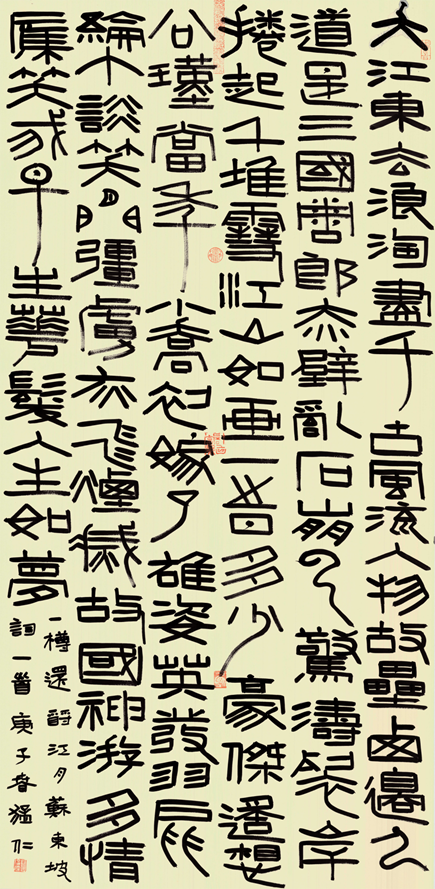 大江東去浪淘盡千古風流人物故壘西邊人
道是三國周郎赤壁亂石崩雲驚濤裂岸
捲起千堆雪江山如畫一時多少豪傑遙想
公瑾當年小喬初嫁了雄姿英發羽扇
綸巾談笑間彊虜灰飛煙滅故國神游多情
應笑我早生華髮人生如夢
一樽還酹江月蘇東坡
詞一首庚子春猛仁